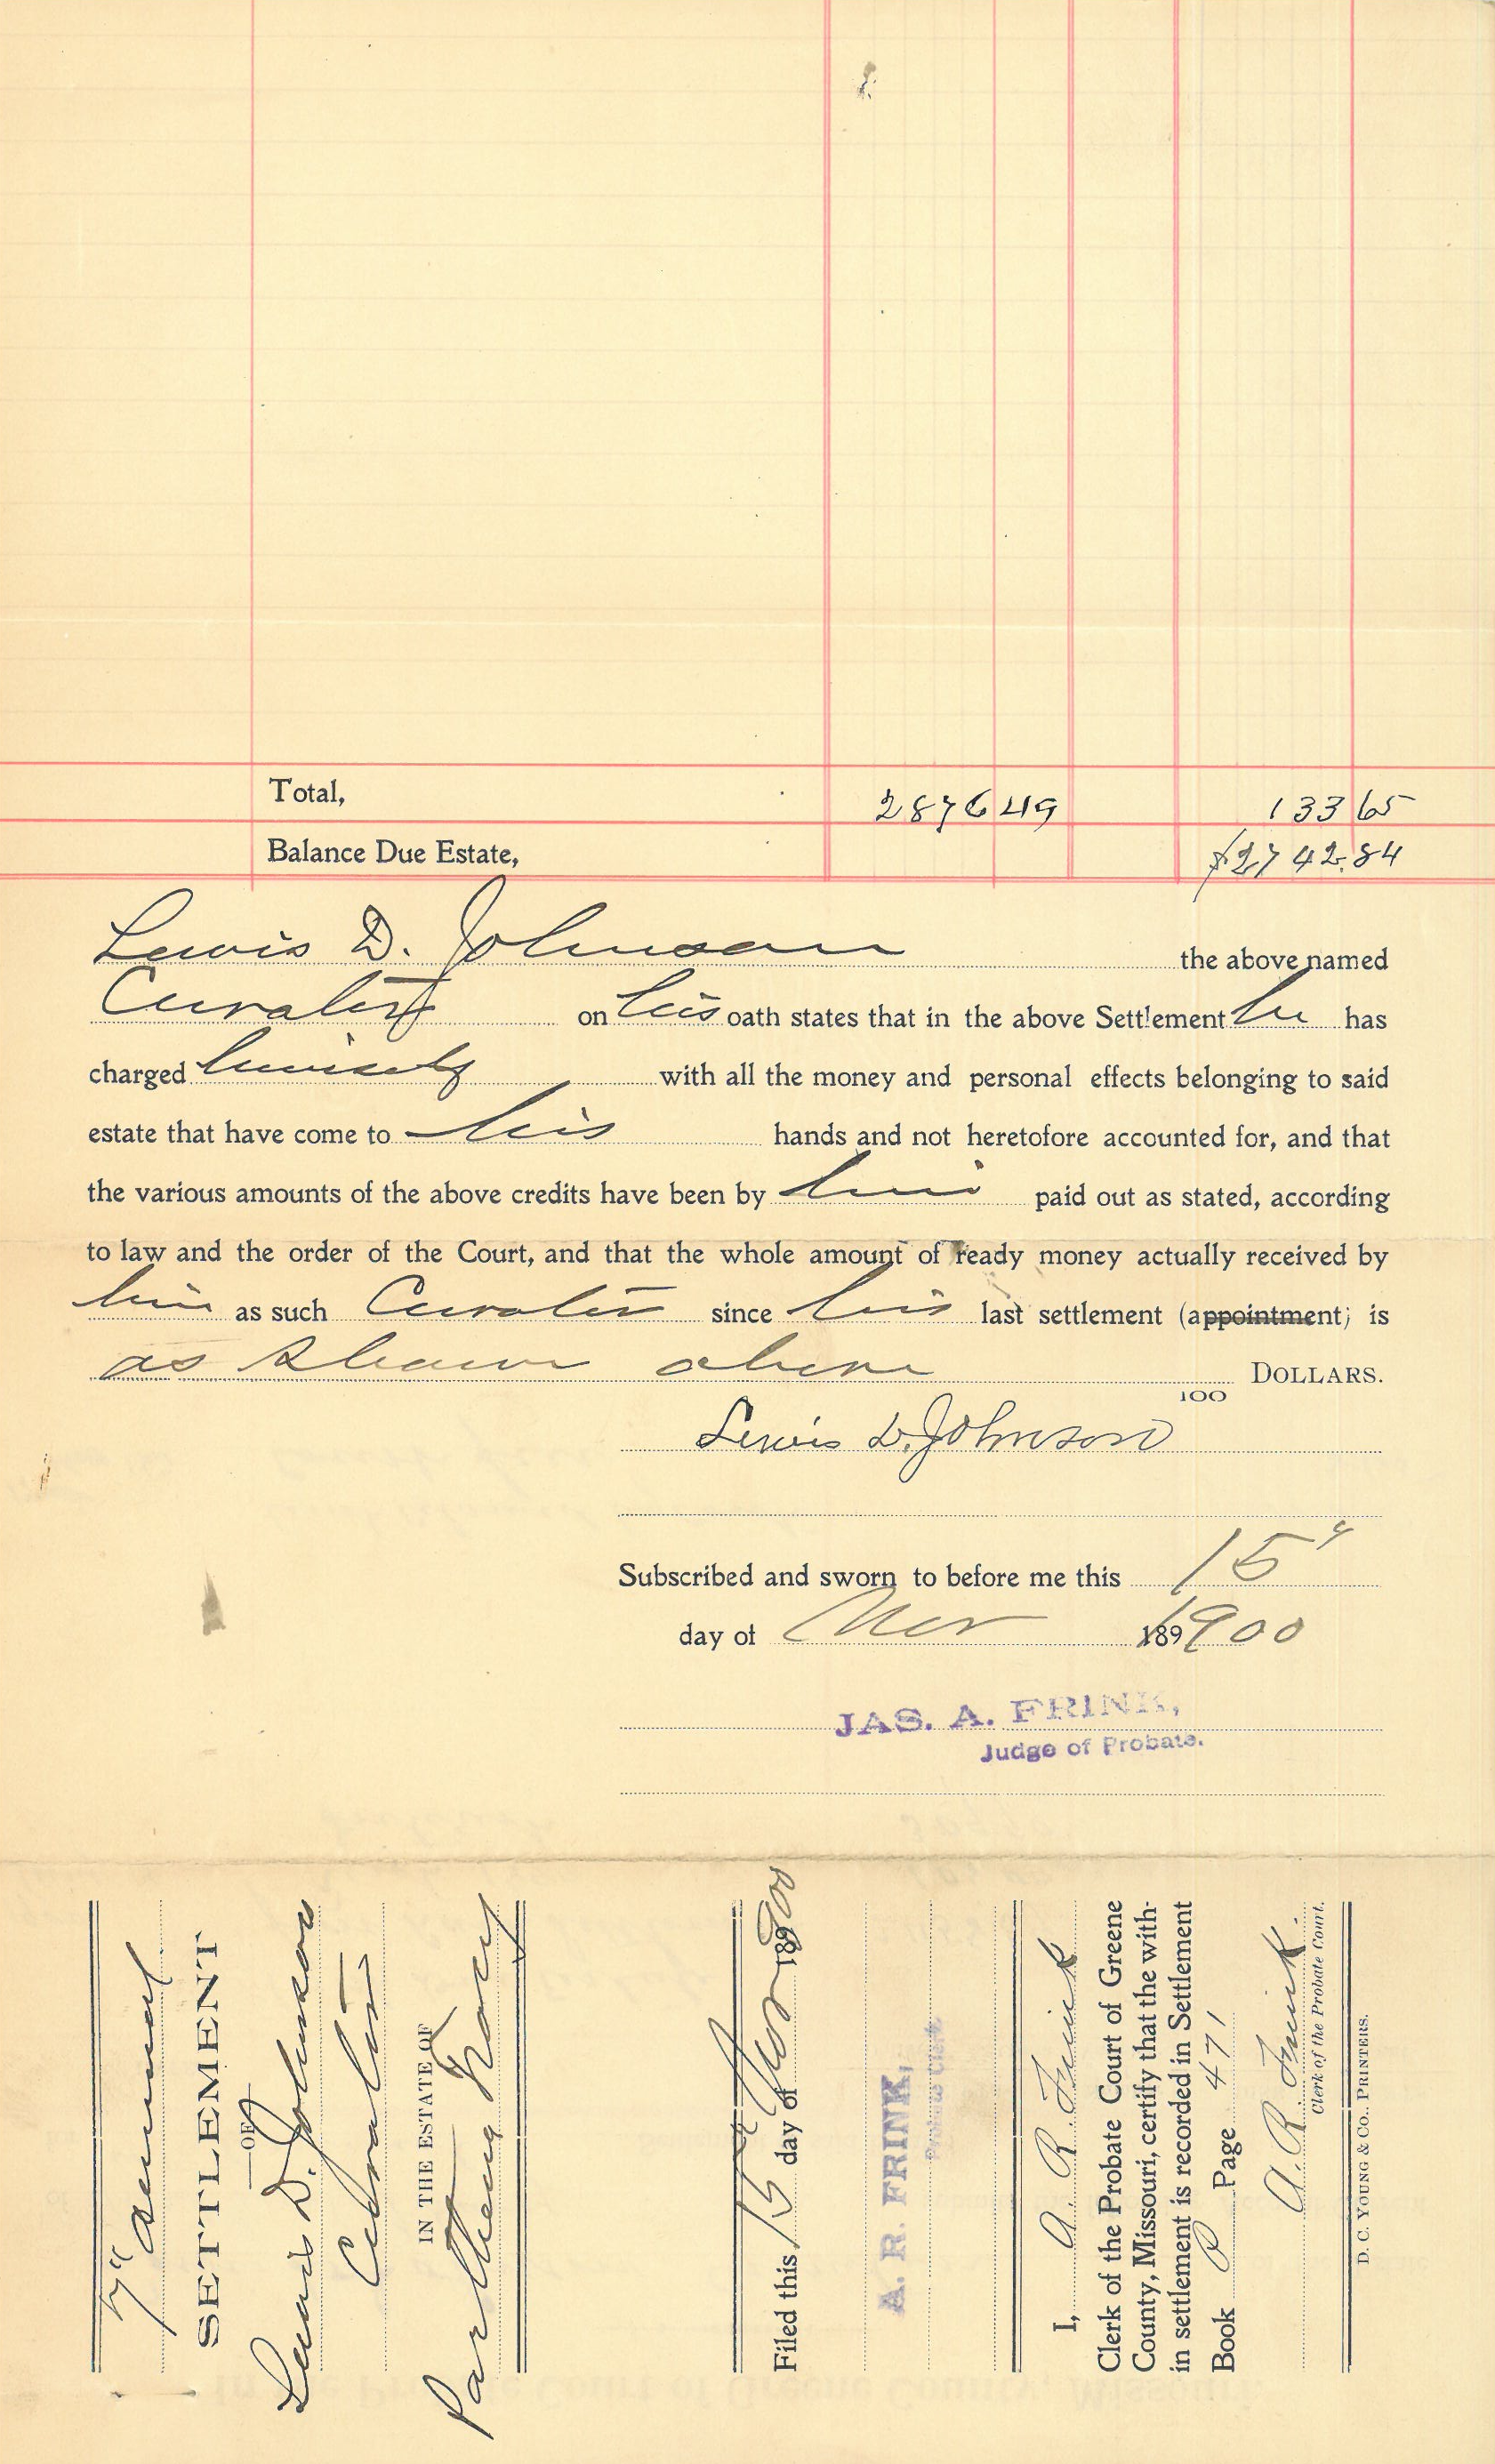 Total, 2876 49 133 65
Balance Due Estate, $2742.84
Lewis D. Johnson the above named
Curator on his oath states that in the above Settlement he has
charged himself with all the money and personal effects belonging to said
estate that have come to his hands and not heretofore accounted for, and that
the various amounts of the above credits have been by him paid out as stated, according
to law and the order of the Court, and that the whole amount of ready money actually received by
him as such Curator since his last settlement (appointment; is
as shown above DOLLARS.
100
Lewis D. Johnson
Subscribed and sworn to before me this 15"
day of Nov 1900
JAS. A. FRINK,
Judge of Probate.
7" Annual
SETTLEMENT
—OF—
Lewis D. Johnson
Curator
IN THE ESTATE OF
Parthena
Filed this 15 day of Nov 1900
A. R. FRINK,
Probate Clerk
I, A. R. Frink
Clerk of the Probate Court of Greene
County, Missouri, certify that the with-
in settlement is recorded in Settlement
Book P Page 471
A. R. Frink.
Clerk of the Probate Court.
D. C. YOUNG & CO., PRINTERS.